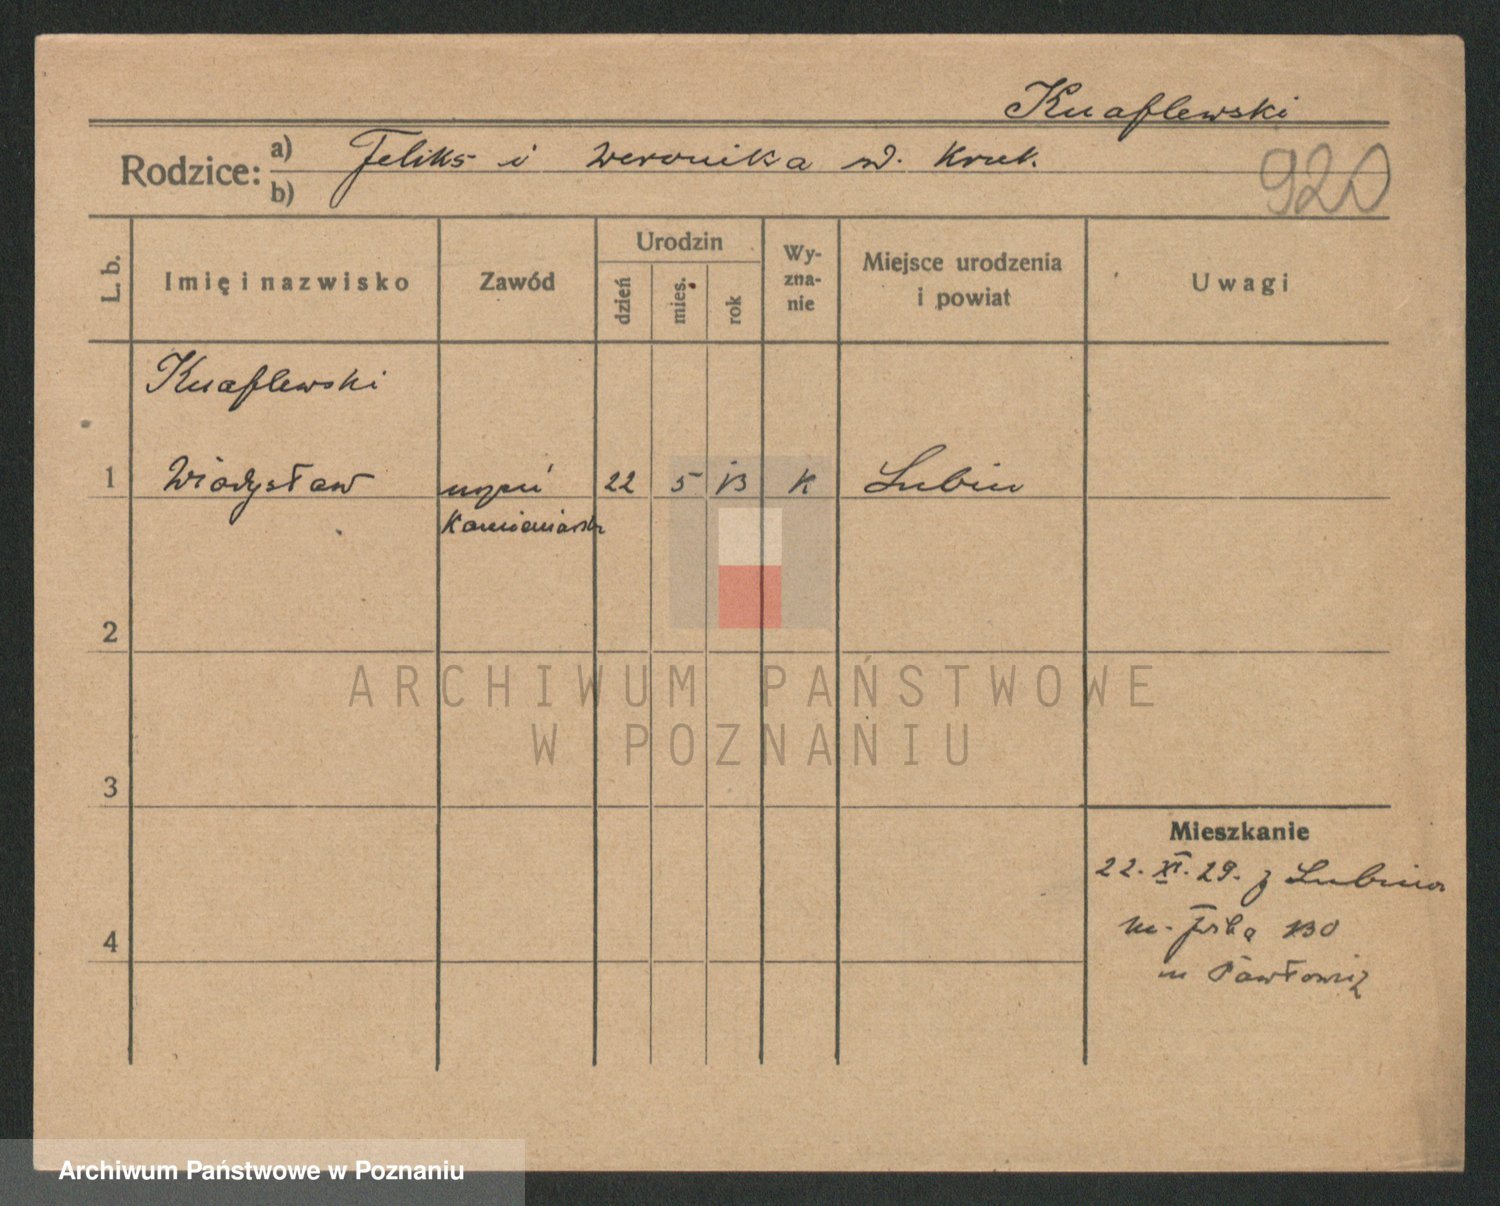 Knaflewski
Rodzice: a) Feliks i Weronika z d. Kruk.
b)
920
L. b.
Imię i nazwisko
Zawód
Urodzin
dzień
mies.
rok
Wy-
zna-
nie
Miejsce urodzenia
i powiat
Uwagi
Knaflewski
1 Władysław uczeń 22 5 13 K Lubiń
kamieniarski
2
3
4
ARCHIWUM PAŃSTWOWE
W POZNANIU
Mieszkanie
22. XI. 29. z Lubinia
130
u Pawłowicz
Archiwum Państwowe w Poznaniu